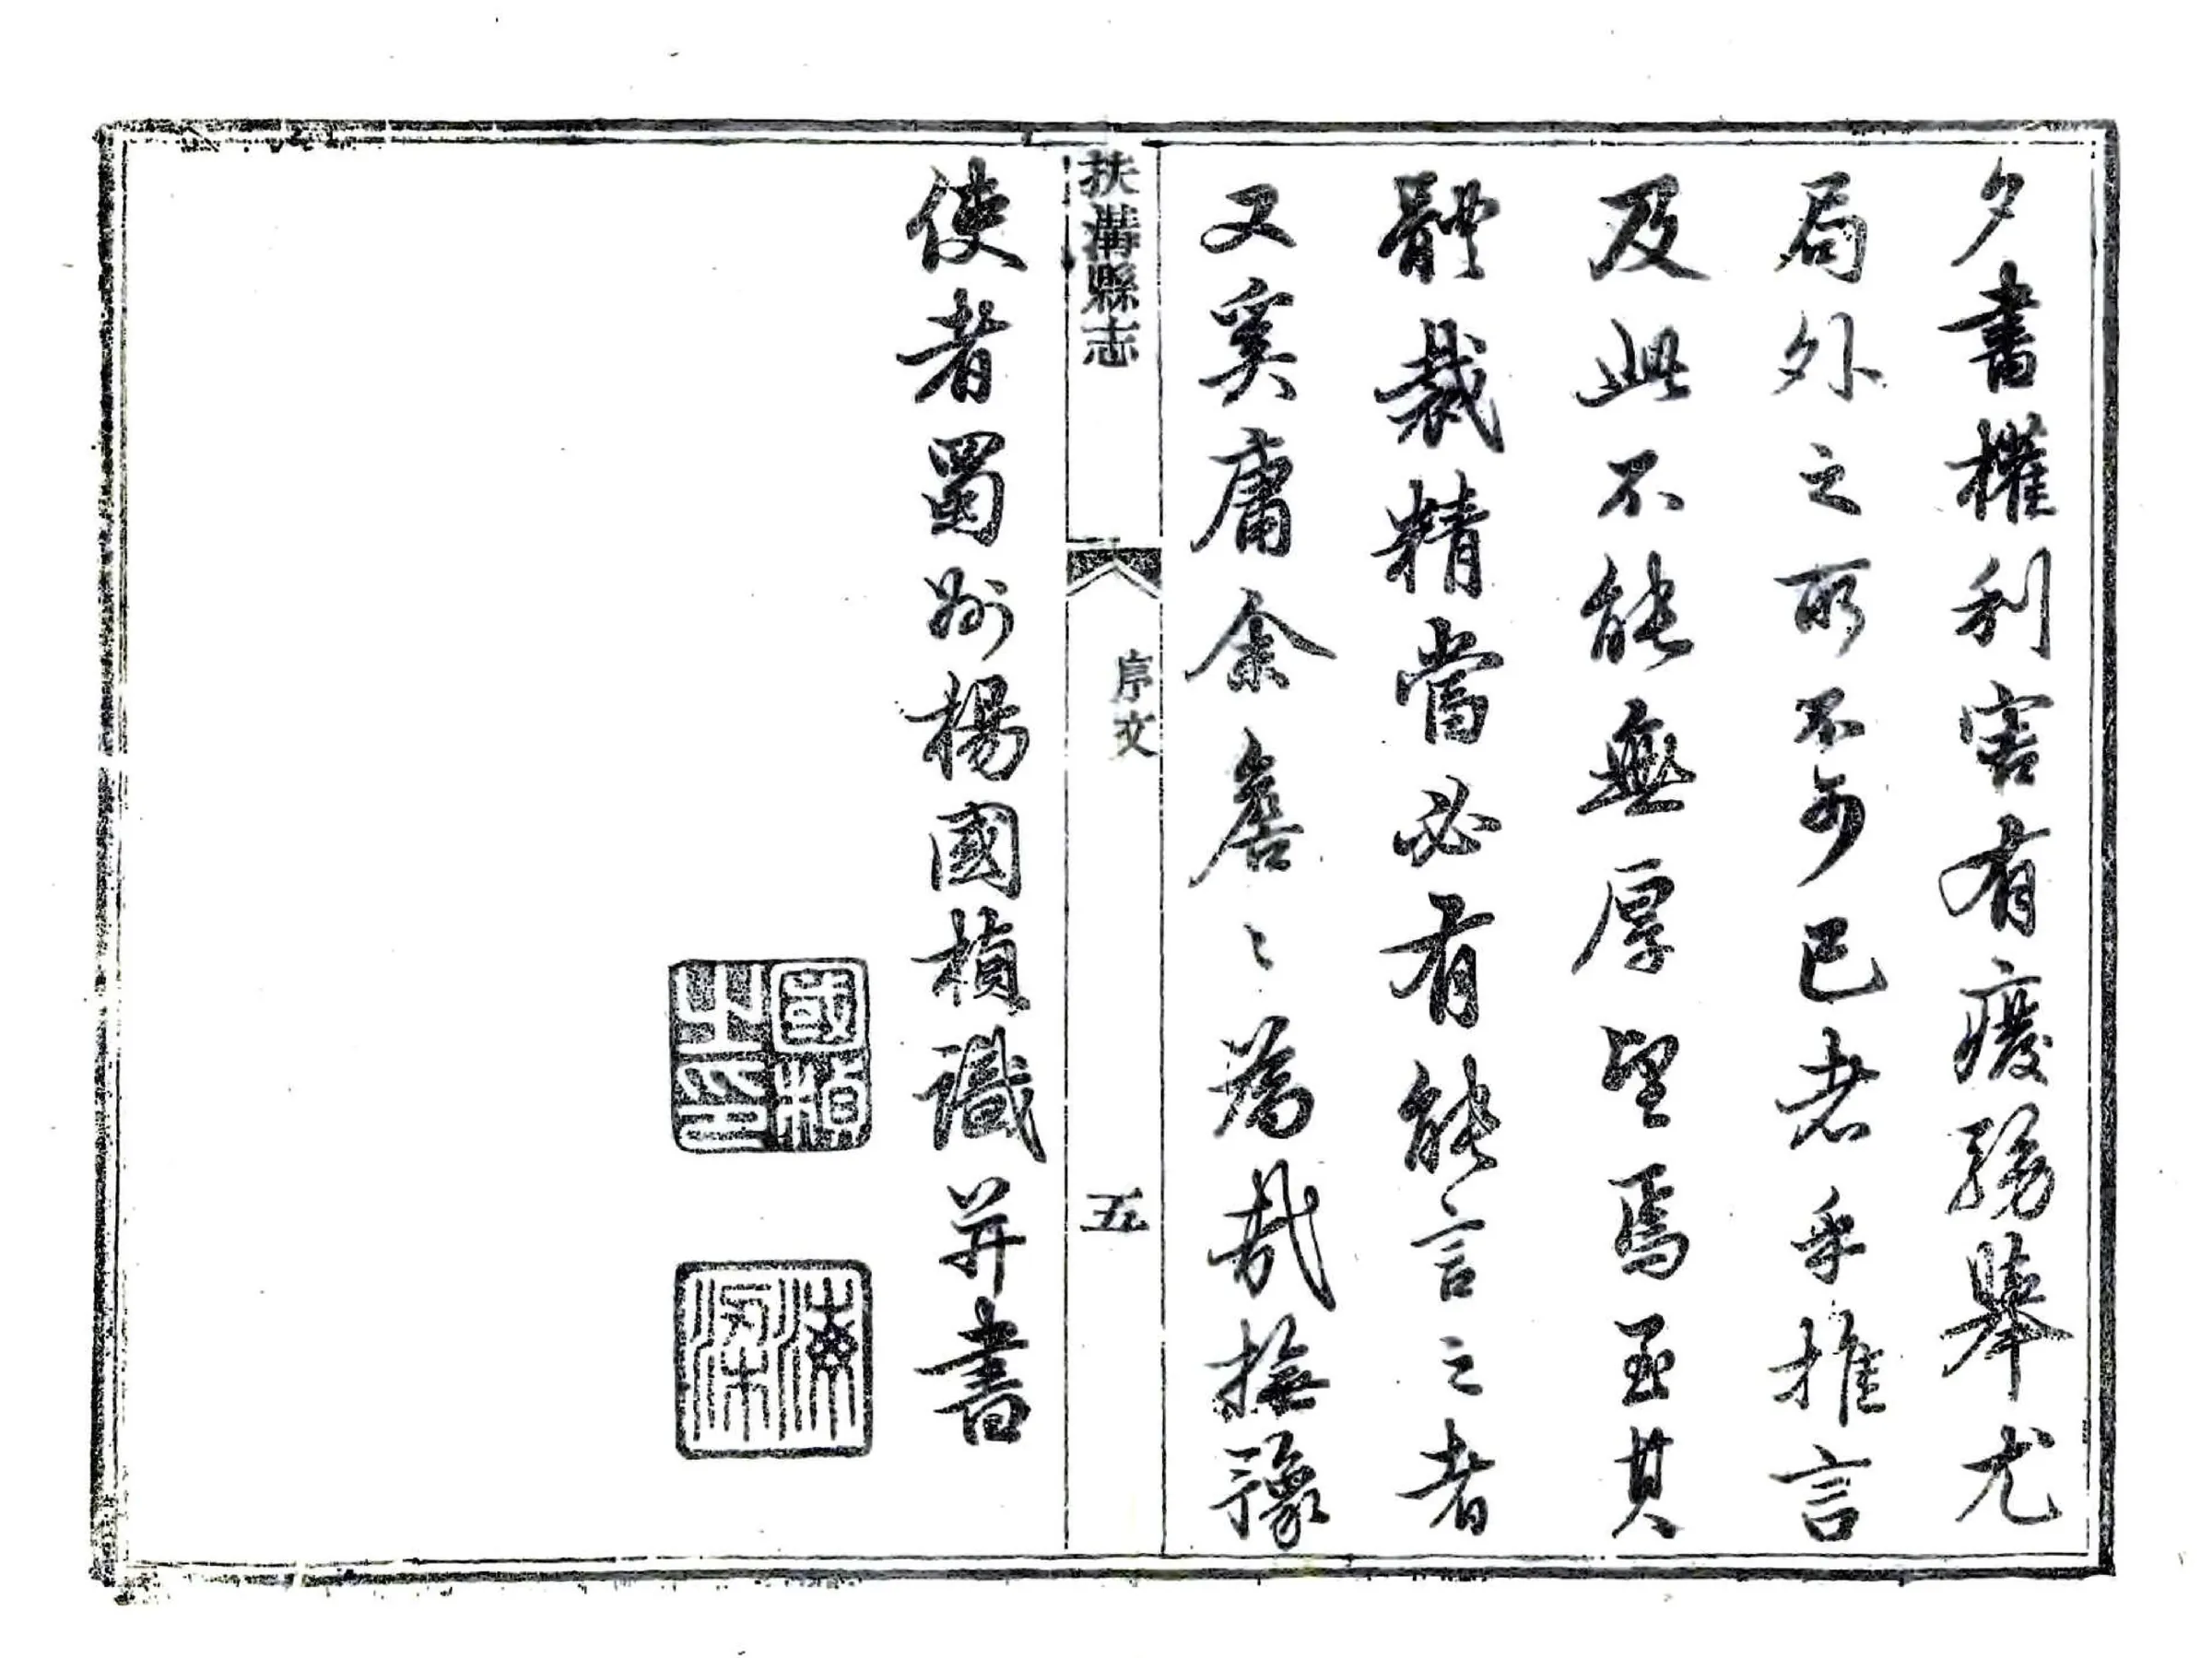 夕書權利害有廢務舉尤
局外之所不可已者乎推言
及此不能無厚望焉至其
體裁精當必有能言之者
又奚庸余詹〻爲哉撫豫
扶溝縣志
序文
五
使者蜀州楊國楨識并書
國楨之印